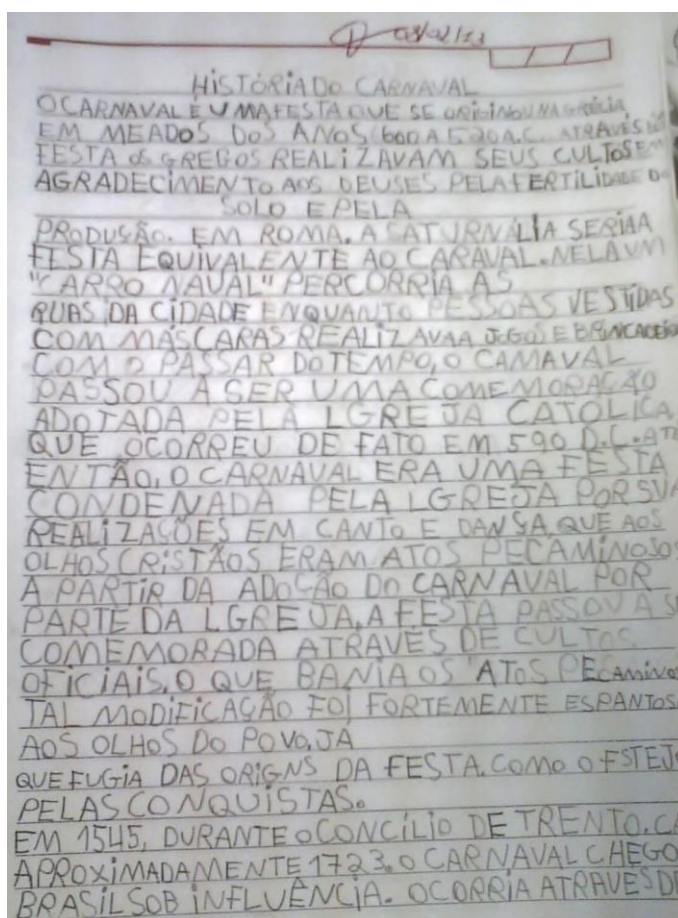 03/02/13
HISTÓRIA DO CARNAVAL
O CARNAVAL É UMA FESTA QUE SE ORIGINOU NA GRÉCIA
EM MEADOS DOS ANOS 600 A 520 A.C. ATRAVÉS
FESTA OS GREGOS REALIZAVAM SEUS CULTOS EM
AGRADECIMENTO AOS DEUSES PELA FERTILIDADE DO
SOLO E PELA
PRODUÇÃO. EM ROMA, A SATURNÁLIA SERIA A
FESTA EQUIVALENTE AO CARAVAL. NELA UM
"CARRO NAVAL" PERCORRIA AS
RUAS DA CIDADE ENQUANTO PESSOAS VESTIDAS
COM MÁSCARAS REALIZAVAA JOGOS E BRINCADEI
COM O PASSAR DO TEMPO, O CAMAVAL
PASSOU A SER UMA COMEMORAÇÃO
ADOTADA PELA LGREJA CATOLICA
QUE OCORREU DE FATO EM 590 D.C. ATÉ
ENTÃO, O CARNAVAL ERA UMA FESTA
CONDENADA PELA LGREJA POR SUA
REALIZAÇÕES EM CANTO E DANSA QUE AOS
OLHOS CRISTÃOS ERAM ATOS PECAMINOSOS
A PARTIR DA ADOÇÃO DO CARNAVAL POR
PARTE DA LGREJA, A FESTA PASSOU A S
COMEMORADA ATRAVÉS DE CULTOS
OFICIAIS, O QUE BANIA OS "ATOS PECAMINO
TAL MODIFICAÇÃO FOI FORTEMENTE ESPANTOS
AOS OLHOS DO POVO, JÁ
QUE FUGIA DAS ORIGNS DA FESTA. COMO O FSTEJO
PELAS CONQUISTAS.
EM 1545, DURANTE O CONCÍLIO DE TRENTO, CA
APROXIMADAMENTE 1723, O CARNAVAL CHEGO
BRASIL SOB INFLUÊNCIA. OCORRIA ATRAVES DE